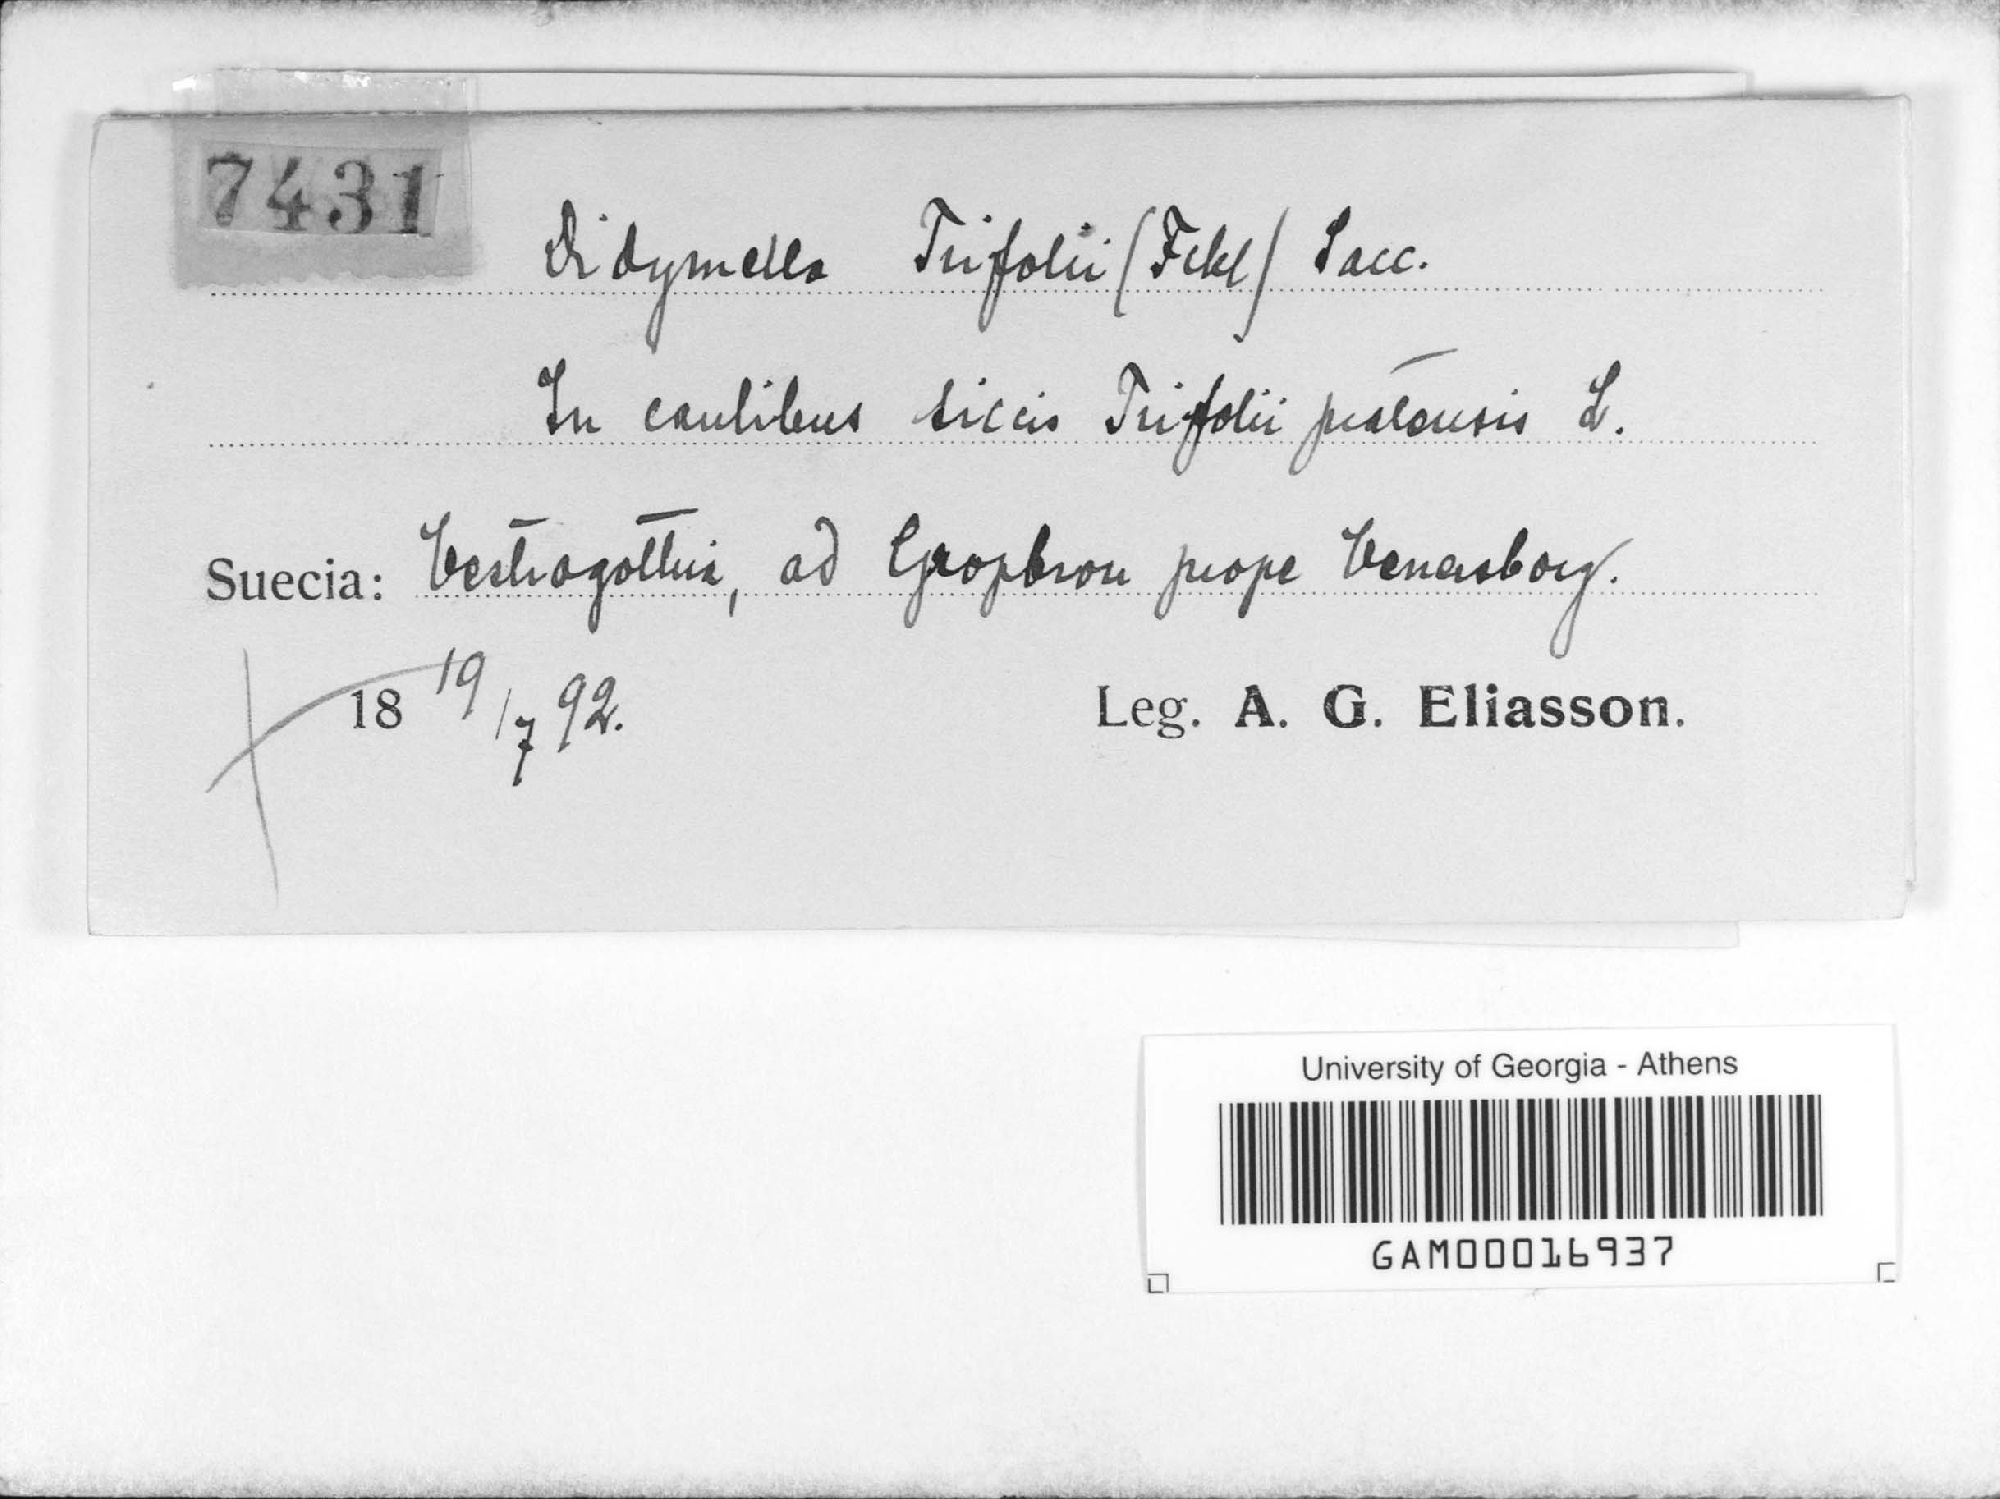 7431
Didymella Trifolii (Fckl) Sacc.
In caulibus siccis Trifolii pratensis L.
Suecia: Vestrogothia, ad Gropbron prope Venersborg.
18 19/7 92.
Leg. A. G. Eliasson.
University of Georgia - Athens
GAM00016937